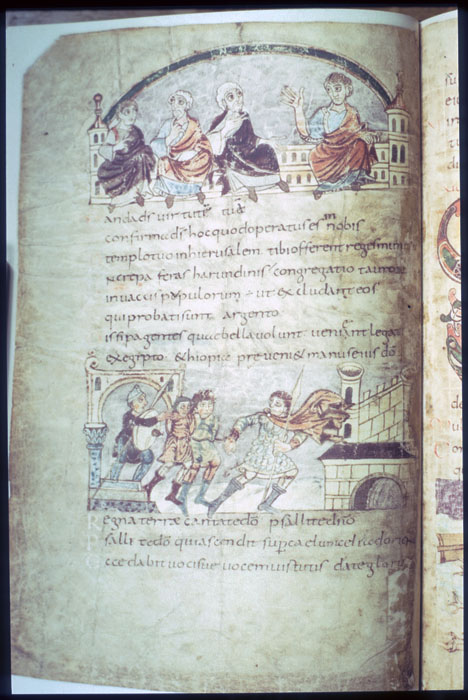 anda ds virtuti tuae
confirma ds hoc quod operatus es in nobis
templo tuo in hierusalem tibi offerent reges mun
increpa feras harundinis congregatio tauro
in vaccis populorum ut excludant eos
qui probati sunt argento
issipa gentes quae bella volunt venient legat
ex egypto &hiopia preveni& manus eius do
Regna terrae cantate do psallite dno
sallite do qui ascendit super caelum celi ad orie
cce dabit voci suae vocem virtutis date glori